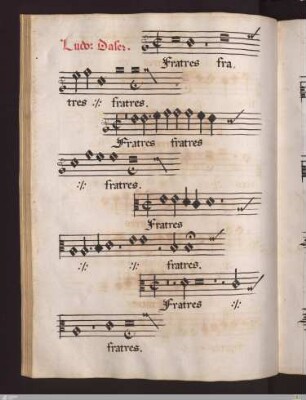 Ludo: Daser.
Fratres fra
tres :/: fratres.
Fratres fratres
:/: fratres.
Fratres
:/: :/: fratres.
Fratres :/:
fratres.